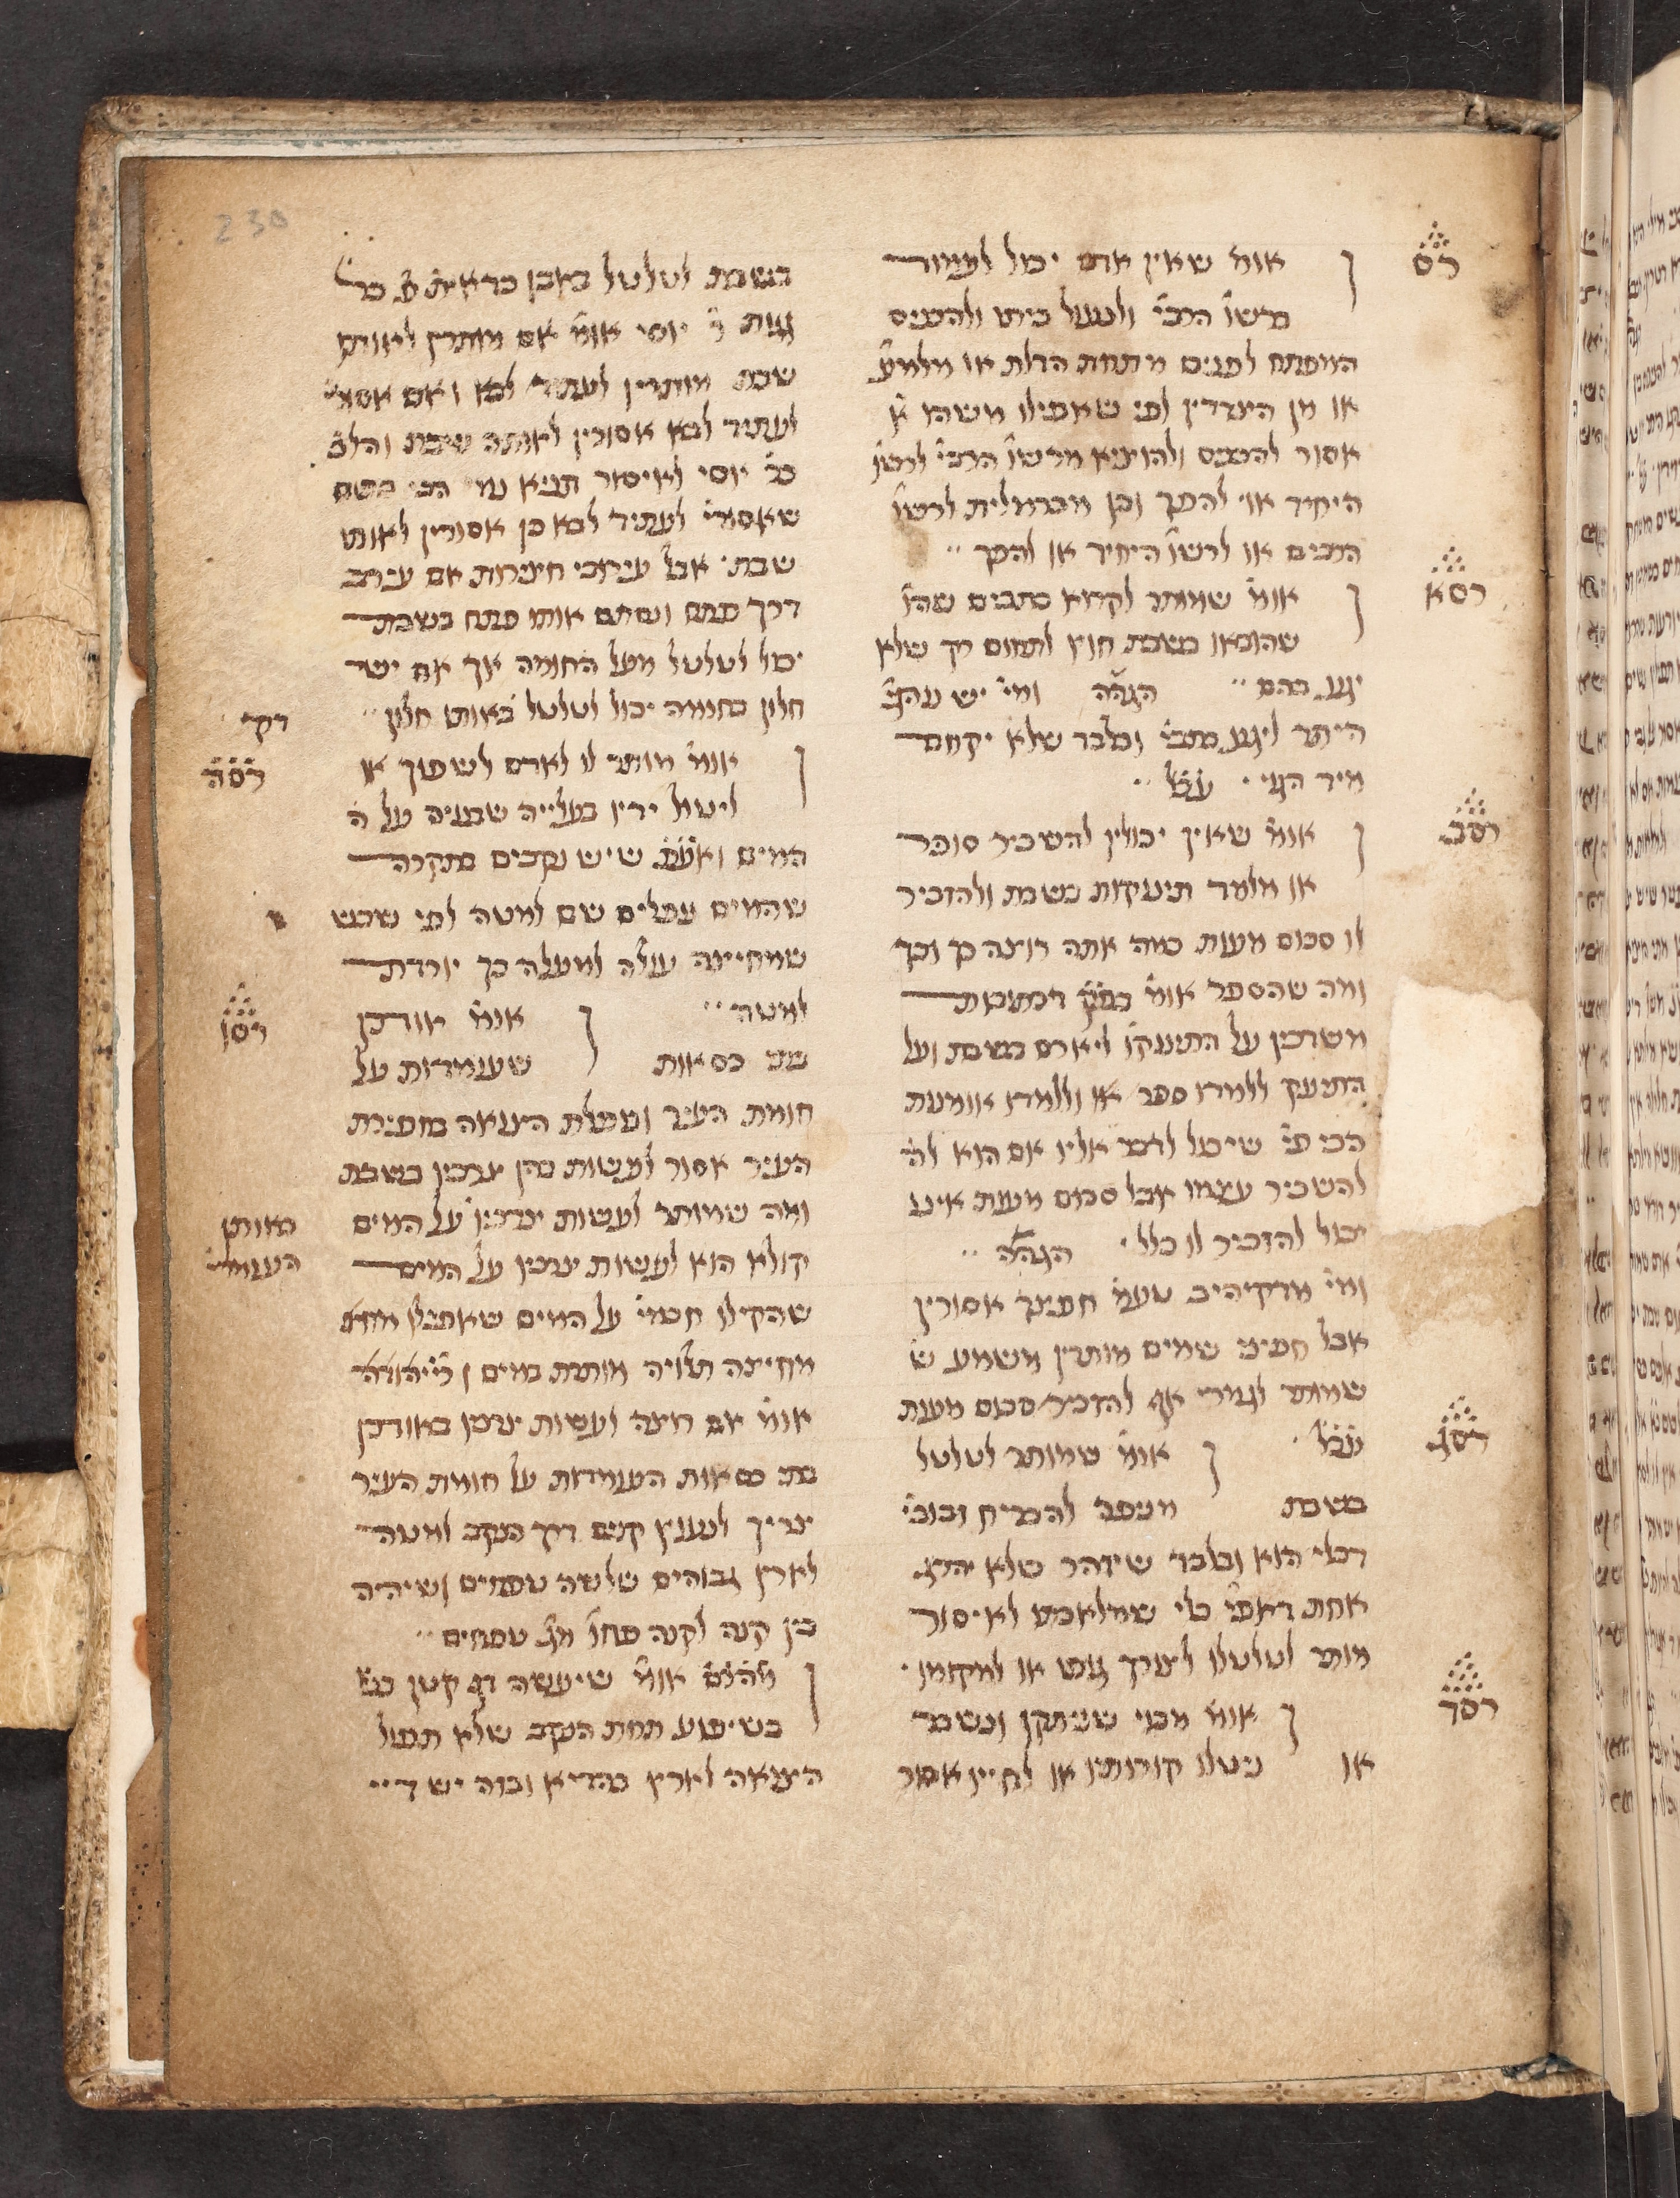 רס
ן אומ' שאין אדם יכול לעמוד
ברשו' הרבי' ולנעול ביתו ולהכניס
המפתח לפנים מתחת הדלת או מלמע'
או מן הצדדין לפי שאפילו משהו
אסור להכניס ולהוציא מרשו' הרבי' לרשו'
היחיד או להפך וכן מכרמלית לרשו'
הרבים או לרשו' היחיד או להפך
רסא
ן אומ' שמותר לקרוא כתבים שהו'
שהובאו בשבת חוץ לתחום רק שלא
יגע בהם הגהה ומי' יש
היתר ליגע בתבי' ובלבד שלא יקחם
מיד הגוי
רסב
ן אומ' שאין יכולין להשכיר סופר
או מלמד תינוקות בשבת ולהזכיר
לו סכום מעות כמה אתה רוצה כך וכך
ומה שהספר אומ' דכתובות
משדכין על התינוקו' ליארס בשבת ועל
התינוק ללמדו ספר או וללמדו אומנות
הכי פי' שיכול לדבר אליו אם הוא
להשכיר עצמו אבל סכום מעות אינו
יכול להזכיר לו כלל הגהה
ומי' מדקיהיב טעמ' חפציך אסורין
אבל חפצי שמים מותרין משמע ש
שמותר לגמרי אף להזכיר סכום מעות
רסג
ן אומ' שמותר לטלטל
בשבת מנפה להבריח זבובי'
דכלי הוא ובלבד שיזהר שלא יהרוג
אחת דאפי' כלי שמלאכתו לאיסור
מותר לטלטלו לצורך גופו או למקומו
רסד
ן אומ' מבוי שניתקן ונשבר
או ניטלו קורותיו או לחייו אסור
בשבת לטלטל באבן כדאית' כל
גגות ר' יוסי אומ' אם מותרין לאותו
שבת מותרין לעתיד לבא ואם אסור'
לעתיד לבא אסורין לאותה שבת והלכ'
כר' יוסי לאיסור תניא נמי הכי כשם
שאסורי' לעתיד לבא כן אסורין לאותו
שבת אבל עירובי חצירות אם עירב
דרך פתח ונסתם אותו פתח בשבת
יכול לטלטל מעל החומה אך אם יש
רק חלון בחומה יכול לטלטל באותו חלון
רסה
ן אומ' מותר לו לאדם לשפוך או
ליטול ידיו בעלייה שבנויה על ה
המים שיש נקבים בתקרה
שהמים נופלים שם למטה לפי שכש
שמחיצה עולה למעלה כך יורדת
למטה
רסו
ן אומ' אודכן
בתי כסאות שעומדות על
חומת העיר ונופלת הצואה בחפירת
העיר אסור לעשות בהן צרכיו בשבת
ומה שמותר לעשות צרכיו על המים באותו
קולא הוא לעשות צרכיו על המים העומד'
שהקילו חכמי' על המים שאפילו
מחיצה תלויה מותרת במים ור' יהודה
אומ' אם רוצה לעשות צרכיו באודכן
בתי כסאות העומדות על חומת העיר
צריך לנעוץ קנים דרך הנקב למטה
לארץ גבוהים שלשה טפחים ושיהיה
בין קנה לקנה פחו' מג' טפחים
ן אומ' שיעשה דף קטן
בשיפוע תחת הנקב שלא תפול
הצואה לארץ בהדיא ובזה יש די